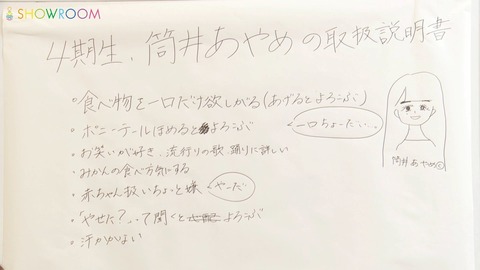 SHOWROOM
4期生、筒井あやめの取扱説明書
・食べ物を一口だけ欲しがる(あげるとよろこぶ)
一口ちょーだい...
・ポニーテールほめるとよろこぶ
・お笑いが好き、流行りの歌、踊りに詳しい
・みかんの食べ方気にする
・赤ちゃん扱いちょっと嫌
やーだ
・「やせた?」って聞くとよろこぶ
・汗かかない
筒井あやめ